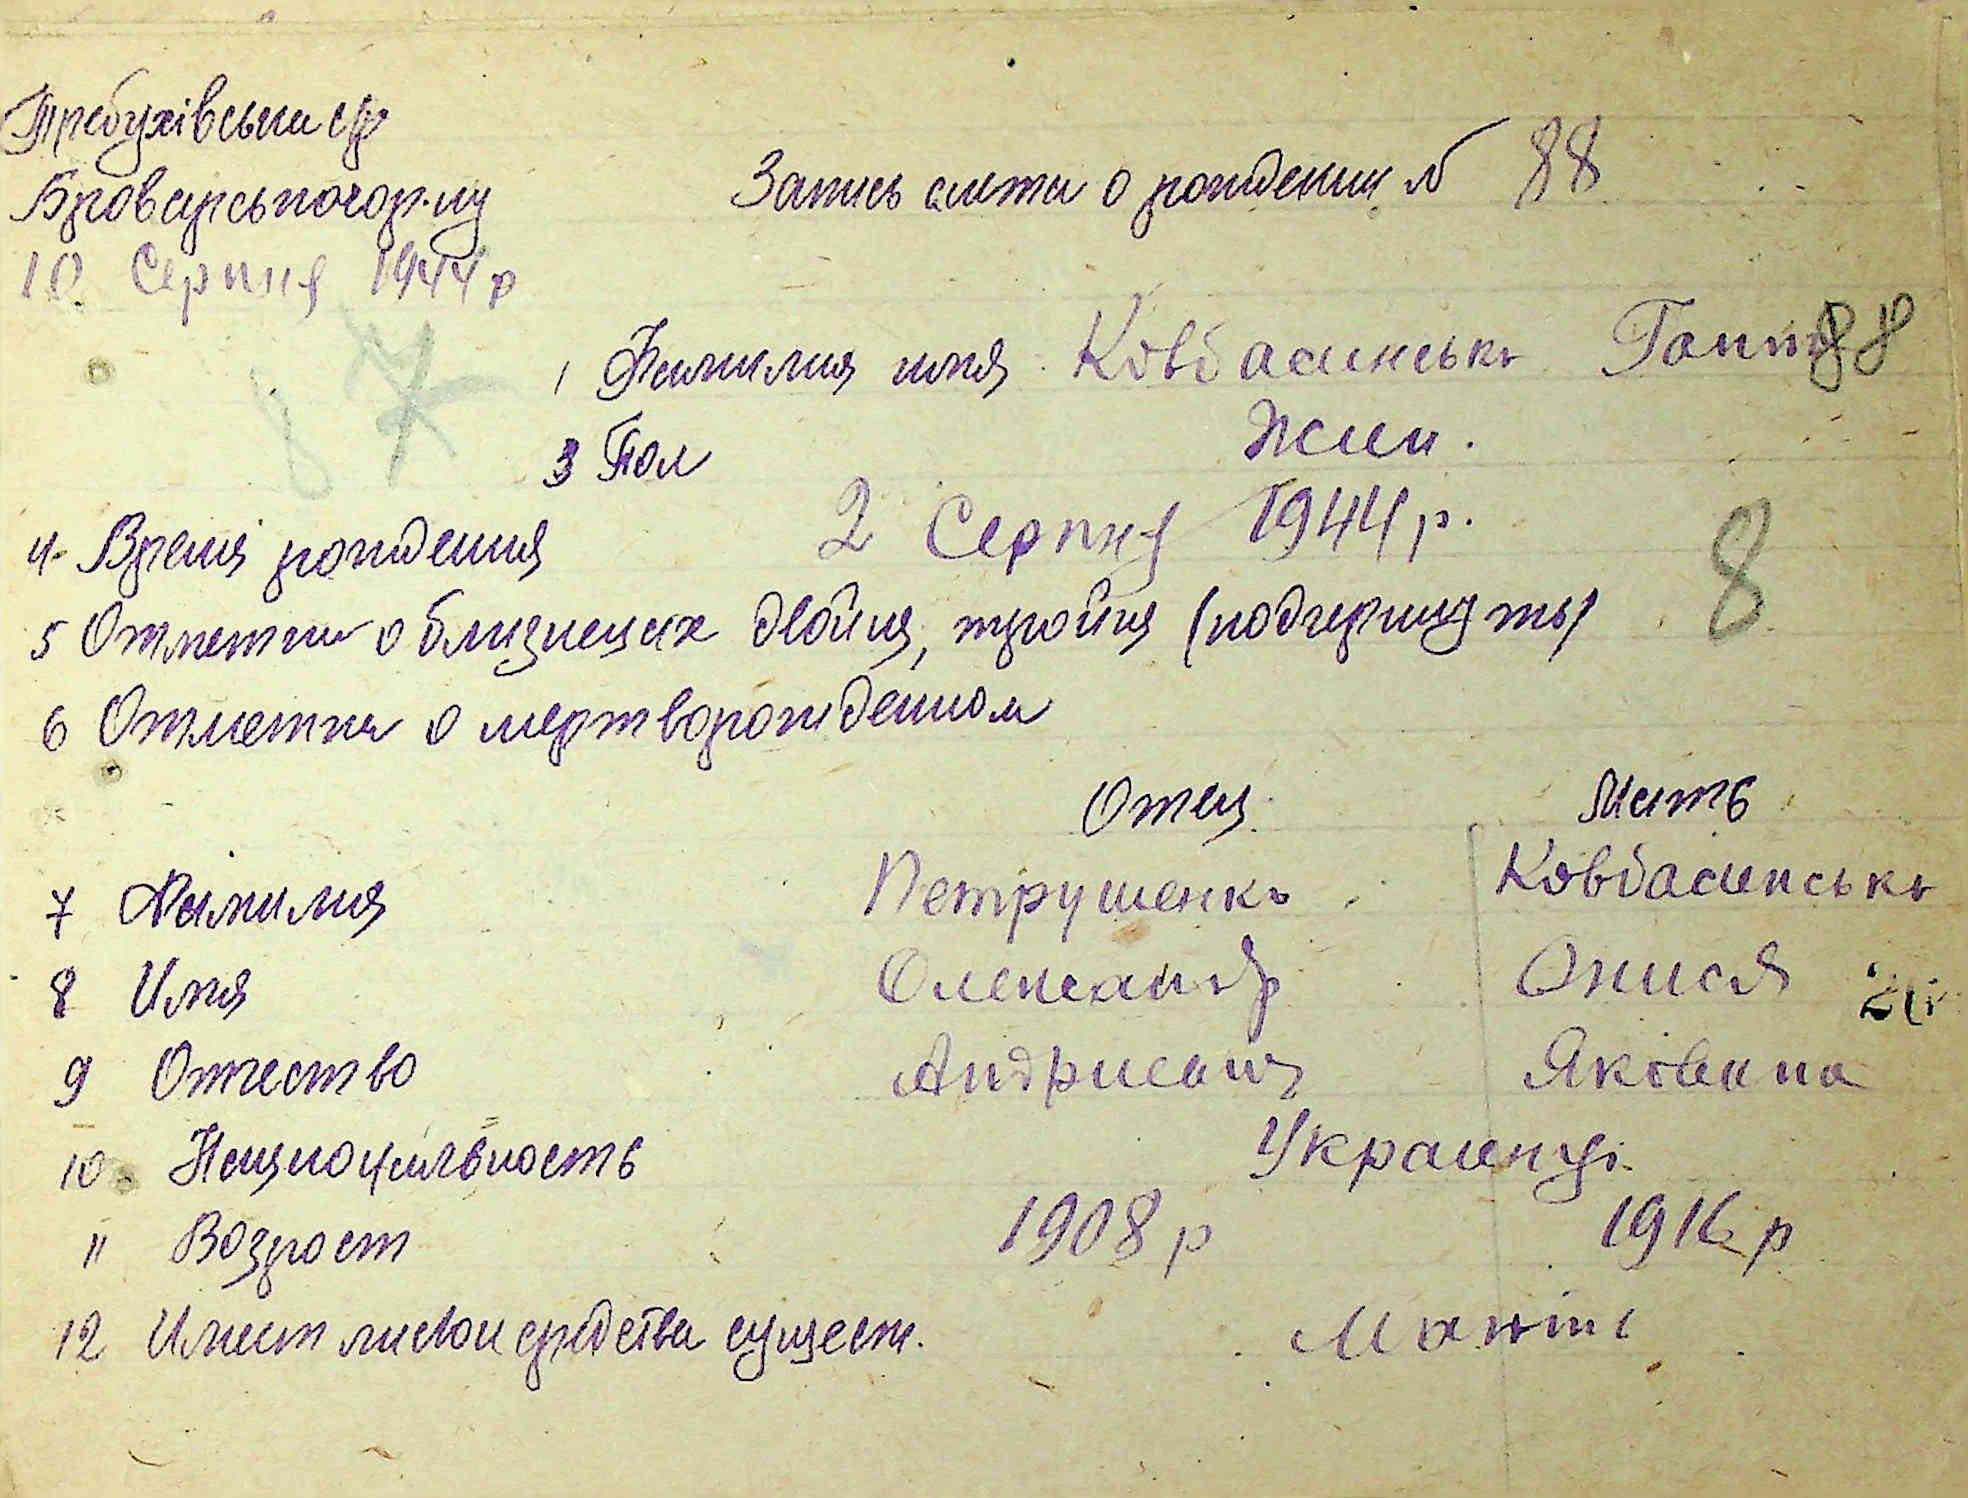 Требухівська с/р
Броварського р-ну
10 Серпня 1944 р
Запись акта о рождении № 88
1 Фамилия имя Ковбасинська
88
3 Пол Жин.
4 Время рождения 2 Серпня 1944 р.
8
5 Отметки о близнецах двойня, тройня (подчеркнуть)
6 Отметка о мертворожденном
Отец Мать
7 Фамилия Петрушенко Ковбасинська
8 Имя Олександр Онися
9 Отчество Андрисович Яковина
10 Национальность Украинці
11 Возраст 1908 р 1916 р
12 Имеет ли свои средства сущест.